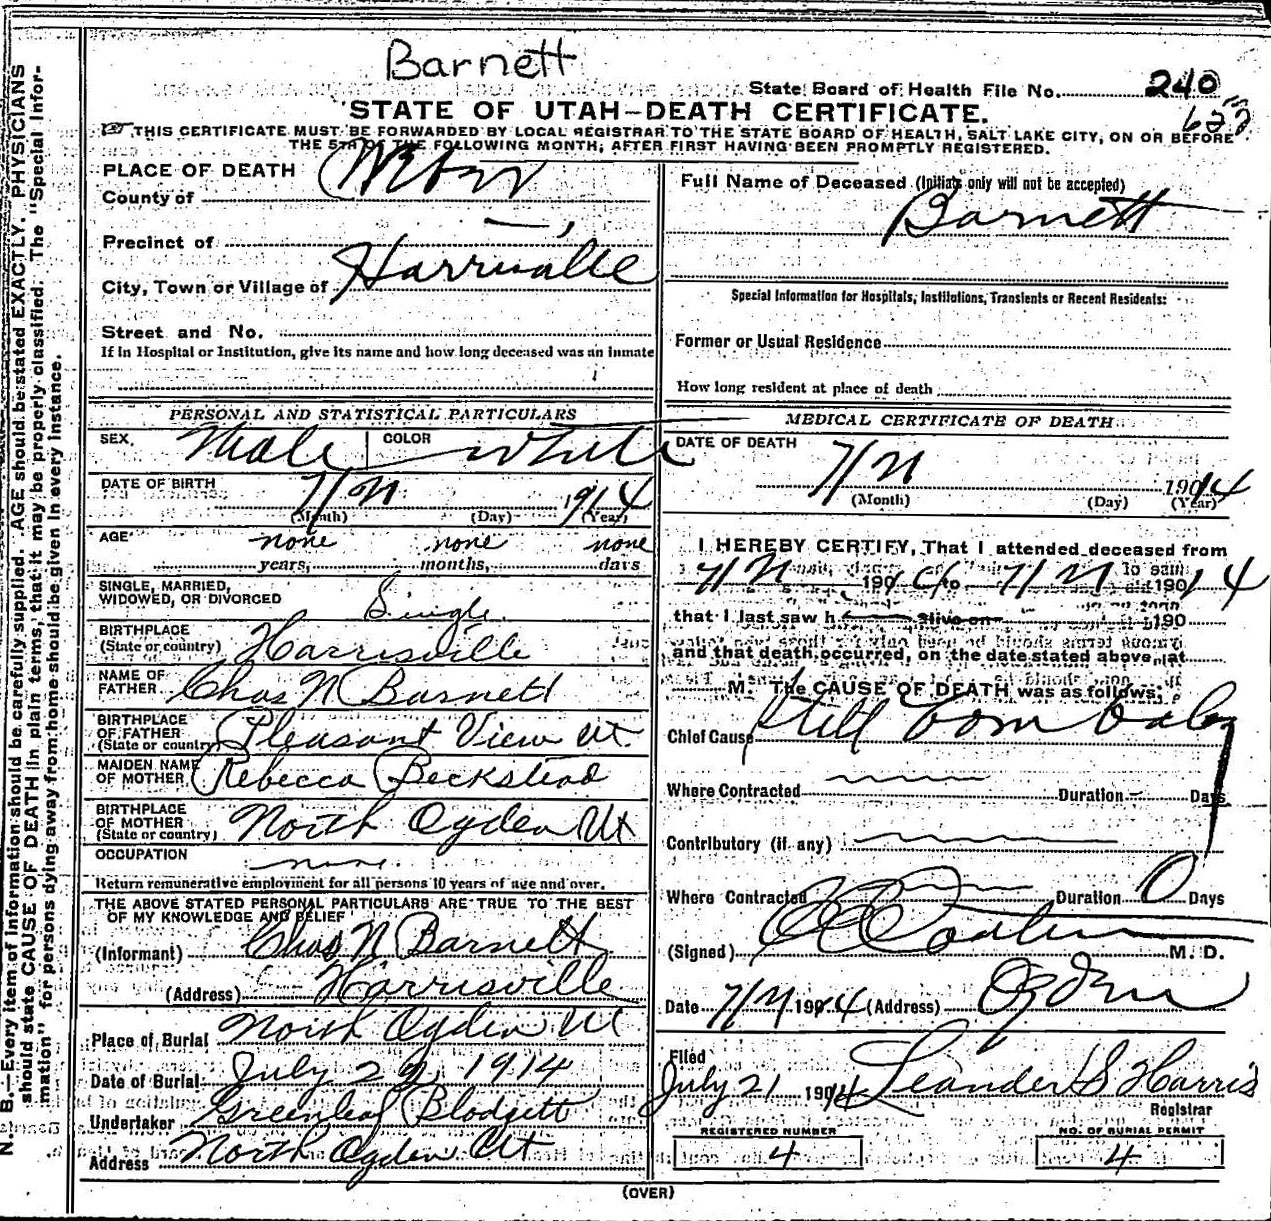 Barnett
State Board of Health File No. 240
STATE OF UTAH—DEATH CERTIFICATE.
THIS CERTIFICATE MUST BE FORWARDED BY LOCAL REGISTRAR TO THE STATE BOARD OF HEALTH, SALT LAKE CITY, ON OR BEFORE
THE 5TH OF THE FOLLOWING MONTH, AFTER FIRST HAVING BEEN PROMPTLY REGISTERED.
N. B.—Every item of information should be carefully supplied. AGE should be stated EXACTLY. PHYSICIANS
should state CAUSE OF DEATH in plain terms, that it may be properly classified. The "Special Infor-
mation" for persons dying away from home should be given in every instance.
PLACE OF DEATH
County of Weber
Precinct of
City, Town or Village of Harrisville
Street and No.
If in Hospital or Institution, give its name and how long deceased was an inmate
PERSONAL AND STATISTICAL PARTICULARS
SEX, Male COLOR White
DATE OF BIRTH 1914
(Month) (Day) (Year)
AGE none none none
years, months, days
SINGLE, MARRIED,
WIDOWED, OR DIVORCED Single
BIRTHPLACE
(State or country) Harrisville
NAME OF
FATHER Chas N Barnett
BIRTHPLACE
OF FATHER
(State or country) Pleasant View Ut.
MAIDEN NAME
OF MOTHER Rebecca Beckstead
BIRTHPLACE
OF MOTHER
(State or country) North Ogden Ut
OCCUPATION none.
Return remunerative employment for all persons 10 years of age and over.
THE ABOVE STATED PERSONAL PARTICULARS ARE TRUE TO THE BEST
OF MY KNOWLEDGE AND BELIEF
(Informant) Chas N Barnett
(Address) Harrisville
Place of Burial North Ogden Ut
Date of Burial July 1914
Undertaker Greenleaf Blodgett
Address North Ogden Ut
Full Name of Deceased (Initials only will not be accepted)
Barnett
Special Information for Hospitals, Institutions, Transients or Recent Residents:
Former or Usual Residence
How long resident at place of death
MEDICAL CERTIFICATE OF DEATH
DATE OF DEATH
1914
(Month) (Day) (Year)
I HEREBY CERTIFY, That I attended deceased from
to
that I last saw h alive on 190
and that death occurred, on the date stated above, at
M. The CAUSE OF DEATH was as follows:
Chief Cause Still born baby
Where Contracted Duration Days
Contributory (if any)
Where Contracted Duration 0 Days
(Signed) M. D.
Date (Address) Ogden
Filed
July 21 1914 Leander S Harris
Registrar
REGISTERED NUMBER
4
NO. OF BURIAL PERMIT
4
(OVER)